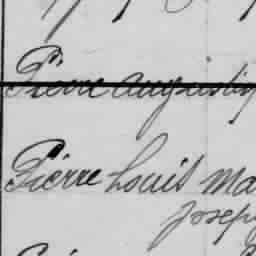 Pierre Augustin
Pierre Louis Ma
Joseph